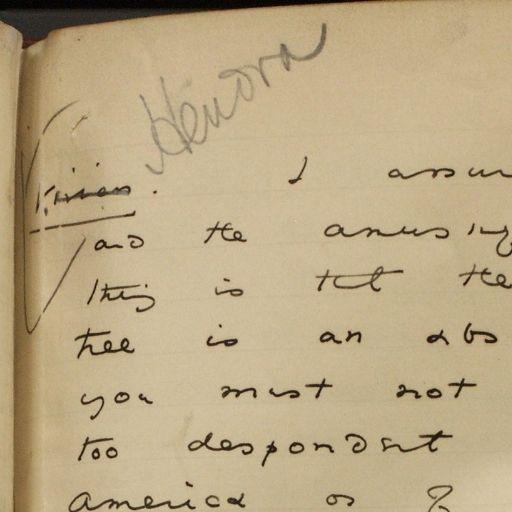 Hendra
Vivien. I assu
and the amusing
thing is tht the
tree is an abs
you must not
too despondent
America or